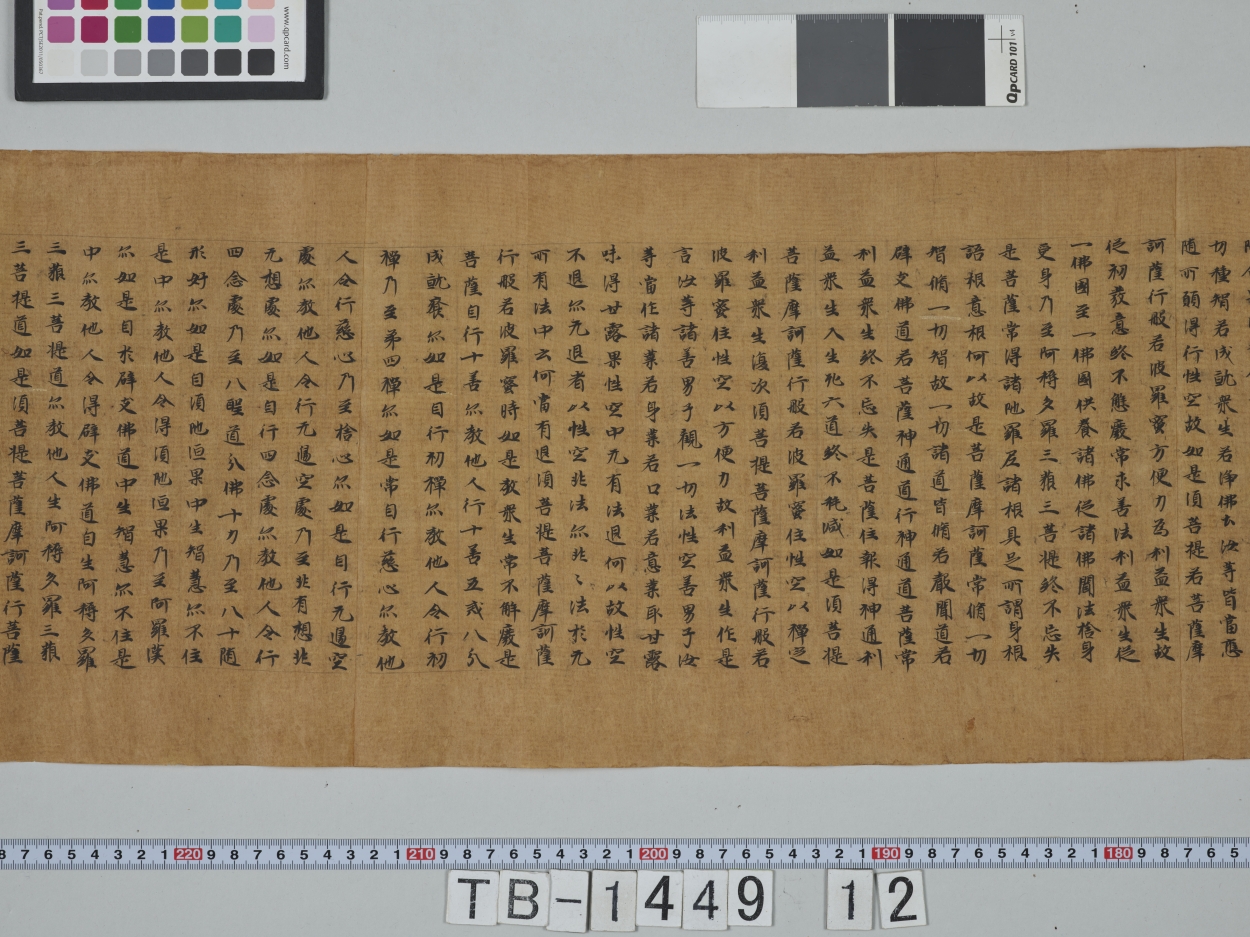 切種智若成就衆生若淨佛玄汝等皆當應
随所願得行性空故如是須菩提若菩薩摩
訶薩行般若波羅蜜方便力為利益衆生故
從初發意終不應嚴常求善法利益衆生從
一佛國至一佛國供養諸佛從諸佛聞法捨身
受身乃至阿耨多羅三藐三菩提終不忘失
是菩薩常得諸陁羅尼諸根具足所謂身根
語根意根何以故是菩薩摩訶薩常脩一切
智脩一切智故一切諸道皆脩若聲聞道若
辟支佛道若菩薩神通道行神通道菩薩常
利益衆生終不忘失是菩薩住報得神通利
益衆生入生死六道終不耗減如是須菩提
菩薩摩訶薩行般若波羅蜜住性空以禪定
利益衆生復次須菩提菩薩摩訶薩行般若
波羅蜜住性空以方便力故利益衆生作是
言汝等諸善男子觀一切法性空善男子汝
等當作諸業若身業若口業若意業取甘露
味得甘露果性空中无有法退何以故性空
不退尒无退者以性空非法尒非〻法於无
所有法中云何當有退須菩提菩薩摩訶薩
行般若波羅蜜時如是教衆生常不懈癈是
菩薩自行十善尒教他人行十善五戒八分
成就癈尒如是自行初禪尒教他人令行初
禪乃至弟四禪尒如是常自行慈心尒教他
人令行慈心乃至捨心尒如是自行无邊空
處尒教他人令行无邊空處乃至非有想非
无想處尒如是自行四念處尒教他人令行
四念處乃至八聖道分佛十力乃至八十随
形好尒如是自須陁洹果中生智慧尒不住
是中尒教他人令得須陁洹果乃至阿羅漢
尒如是自於辟支佛道中生智慧尒不住是
中尒教他人令得辟支佛道自生阿耨多羅
三藐三菩提道尒教他人生阿耨多羅三藐
三菩提道如是須菩提菩薩摩訶薩行菩薩
www.qpcard.com
QpCARD 101 v4
8 7 6 5 4 3 2 1 220 9 8 7 6 5 4 3 2 1 210 9 8 7 6 5 4 3 2 1 200 9 8 7 6 5 4 3 2 1 190 9 8 7 6 5 4 3 2 1 180 9 8 7 6 5
TB-1449 12